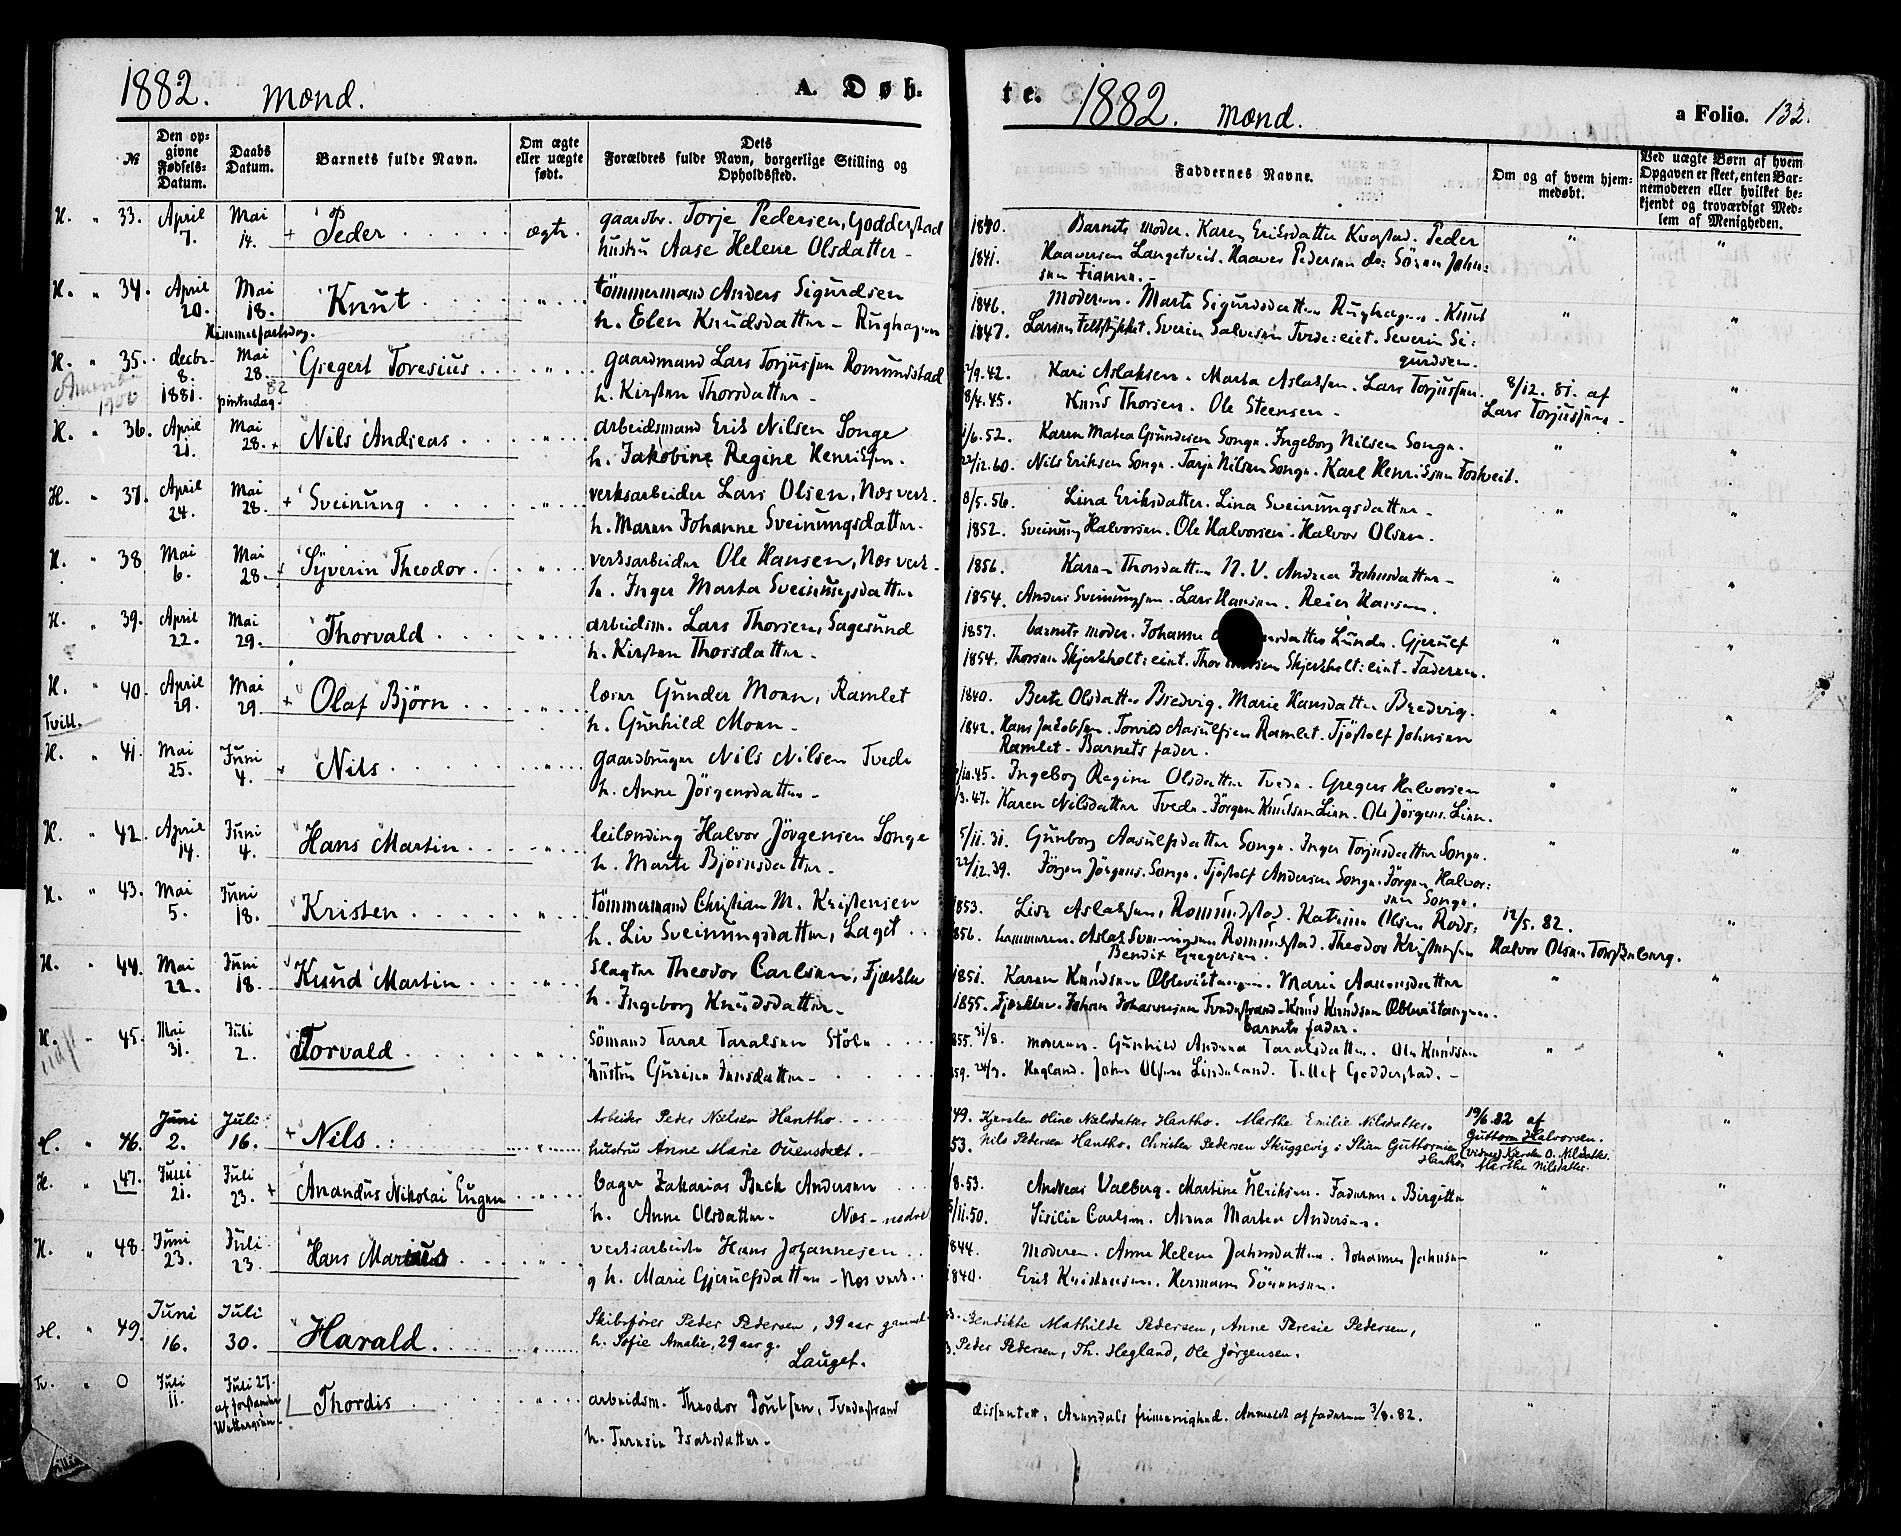 1882. Mænd. A. Døb-
№ Den opgivne Fødsels-Datum. Daabs Datum. Barnets fulde Navn. Om ægte eller uægte født. Dets Forældres fulde Navn, borgerlige Stilling og Opholdssted.
H. " 33. April 7. Mai 14. + Peder ægte. gaardbr. Torje Pedersen, Godderstad
hustru Aase Helene Olsdatter -
H. " 34. April 20. Mai 18. Himmelfartsdag. Knut " tömmermand Anders Sigurdsen
h. Elen Knudsdatter - Rughagen
H. " 35. decbr. 8. 1881. Mai 28. 82 pintsedag. Gregert Toresius " gaardmand Lars Torjussen Romundstad
1900
h. Kirsten Thorsdatter -
H. " 36. April 21. Mai 28. + Nils Andreas " arbeidsmand Erik Nilsen Songe
h. Jakobine Regine Henriksen.
H. " 37. April 24. Mai 28. + Sveinung " verksarbeider Lars Olsen, Næs verk.
h. Maren Johanne Sveinungsdatter.
H. " 38 Mai 6. Mai 28. + Syverin Theodor " verksarbeider Ole Hansen, Næs verk -
h. Inger Marta Sveinungsdatter
H. " 39. April 22. Mai 29. Thorvald " arbeidsm. Lars Thorsen, Sagesund
h. Kirsten Thorsdatter -
H. " 40. April 29. Mai 29. + Olaf Björn " lærer Gunder Moen, Ramlet
Tvill. h. Gunhild Moen -
H. " 41. Mai 25. Juni 4. + Nils " gaardbruger Nils Nilsen Tvede
h. Anne Jörgensdatter -
H. " 42. April 14. Juni 4. Hans Martin " leilænding Halvor Jörgensen Songe
h. Marte Bjørnsdatter.
H. " 43. Mai 5. Juni 18. Kristen " tömmermand Christian M. Kristensen
h. Liv Sveinungsdatter, Laget
H. " 44. Mai 22. Juni 18. Knud Martin " slagter Theodor Carlsen, Fjærkleu
h. Ingeborg Knudsdatter.
H. " 45. Mai 31. Juli 2. Torvald " sömand Taral Taralsen Stöle
hustru Gurine Jensdatter -
H. " 46. Juni 2. Juli 16. + Nils. " Arbeider Peder Nielsen Hantho.
hustru Anne Marie Ouensdatt.
H. " 47. Juni 21. Juli 23. + Anandus Nikolai Eugen " bager Zakarias Bech Andersen
h. Anne Olsdatter. Næs - nedre
H. " 48. Juni 23. Juli 23. Hans Marius " verksarbeider Hans Johannesen
g h. Marie Gjerulfsdatter - Næs verk
H. " 49. Juni 16. Juli 30. Harald " Skibsfører Peder Pedersen, 39 aar gammel
h. Sofie Amalie, 29 aar g.
Lauget.
Tv. " 0 Juli 11. Juli 27. af forstander Wettergren. Thordis " arbeidsm. Theodor Poulsen, Tvedestrand
h. Teresie Isaksdatter.
te. 1882. Mænd. a Folio. 132.
Faddernes Navne. Om og af hvem hjemmedøbt. Ved uægte Børn af hvem Opgaven er skeet, enten Barnemoderen eller hvilket bekjendt og troværdigt Medlem af Menigheden.
1840. Barnets moder. Karen Eriksdatter Kvastad. Peder " "
1841. Haaversen Langetveit. Haaver Pedersen do: Sören John:
sen Fianne. -
1846. Moderen. Marte Sigurdsdatter Rughagen. Knut " "
1847. Larsen Feltstykket. Sverin Salvesen Tvede:eiet. Severin Si:
gurdsen.
/9.42. Kari Aslaksen. Marta Aslaksen. Lars Torjussen. 8/12. 81. af "
8/4.45. Knud Thorsen. Ole Steensen - Lars Torjussen -
1/6.52. Karen Matea Gundersen Songe. Ingeborg Nilsen Songe. " "
22/12.60. Nils Eriksen Songe. Tarje Nilsen Songe. Karl Henriksen Foskveit.
8/5.56. Lina Eriksdatter. Lina Sveinungsdatter - " "
1852. Sveinung Halvorsen. Ole Halvorsen. Halvor Olsen.
1856. Karen Thorsdatter N. V. Andrea Johnsdatter - " "
1854. Anders Sveinungsen. Lars Hansen. Reier Hansen.
1857. barnets moder. Johanne Lunde. Gjerulf " "
1854. Thorsen Skjerkholt:eiet. Thor Skjerkholt:eiet. Faderen.
1840. Berte Olsdatter Bredvig. Marie Hansdatter Bredvig. " "
1842. Hans Jakobsen. Torvild Aasulfsen Ramlet. Tjöstolf Johnsen
Ramlet. Barnets fader.
/10.45. Ingeborg Regine Olsdatter Tvede. Gregers Halvorsen " "
/3.47. Karen Nilsdatter Tvede. Jörgen Knutsen Lien. Ole Jörgens. Lien.
5/11.31. Gunborg Aasulfsdatter Songe. Inger Torjusdatter Songe. " "
22/12.39. Jörgen Jörgens. Songe. Tjöstolf Andersen Songe. Jörgen Halvor:
sen Songe.
1853. Lise Aslaksen, Romundstad. Katrine Olsen Rods: 12/5. 82. "
856. hammeren. Aslak Sveinungsen Romundstad. Theodor Kristensen Halvor Olsen Torskeberg.
Bendix Gregersen.
1851. Karen Knudsen Oblevistangen. Marie Aanonsdatter " "
1855. Fjærkleu. Johan Johannesen Tvedestrand. Knud Knudsen Oblevistangen.
barnets fader.
855. 31/8. moderen. Gunhild Andrea Taralsdatter. Ole Knudsen " "
59. 24/7. Hegland. John Olsen Lindeland. Tellef Godderstad. -
49. Kjersten Oline Nielsdatter Hantho. Marthe Emilie Nilsdatter. 19/6.82 af "
53. Nils Pedersen Hantho. Christen Pedersen Skuggevig. Stian Guttormsen Guttorm Halvorsen.
Hantho (vidner) Kjersten O. Nilsdatter.
Marthe Nilsdatter.
/8.53. Andreas Valberg. Martine Ulriksen. Faderen. Birgitte " "
5/11.50. Sisilie Carlsen. Anna Martea Andersen.
844. Moderen. Anne Helene Jahnsdatter. Johannes Jahnsen " "
1840. Erik Kristensen. Hermann Sörensen.
Bendikte Mathilde Pedersen, Anne Theresie Pedersen, " "
Peder Pedersen, Th. Hegland, Ole Jørgensen.
dissenter, Arendals frimenighed. Anmeldt af faderen 3/8. 82. "